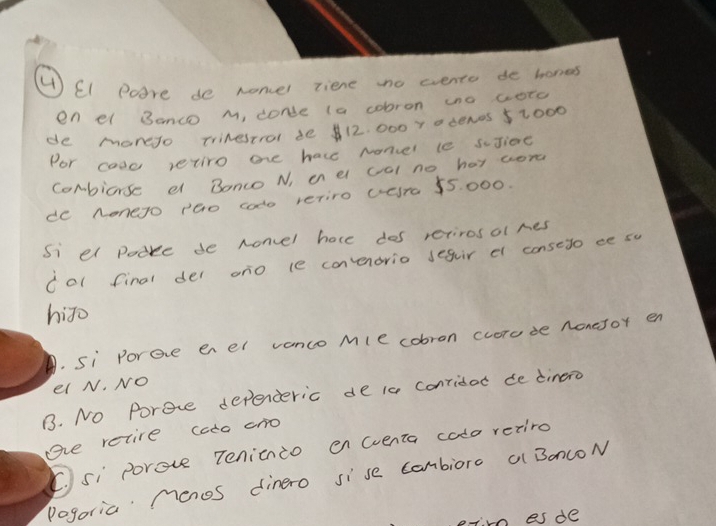 ④ El Padre de Manuel tiene una cuenta de honos
en el Banco M, donde la cobran una cuota
de manejo trimestral de $12.000 y ademas $2000
Por cada retiro que hace Manuel le sujiere
cambiarse al Banco N, en el cual no hay cuota
de manejo pero cada retiro cuesta $5.000.
Si el Padre de Manuel hace dos retiros al mes
¿al final del año le convendria seguir el consejo de su
hijo
A. Si Porque en el vanco M le cobran cuota de manejo y en
el N. NO
B. NO Porque dependeria de la cantidad de dinero
que retire cada año
C. Si porque teniendo en cuenta cada retiro
pagaria. Menos dinero si se cambiara al Banco N
es de